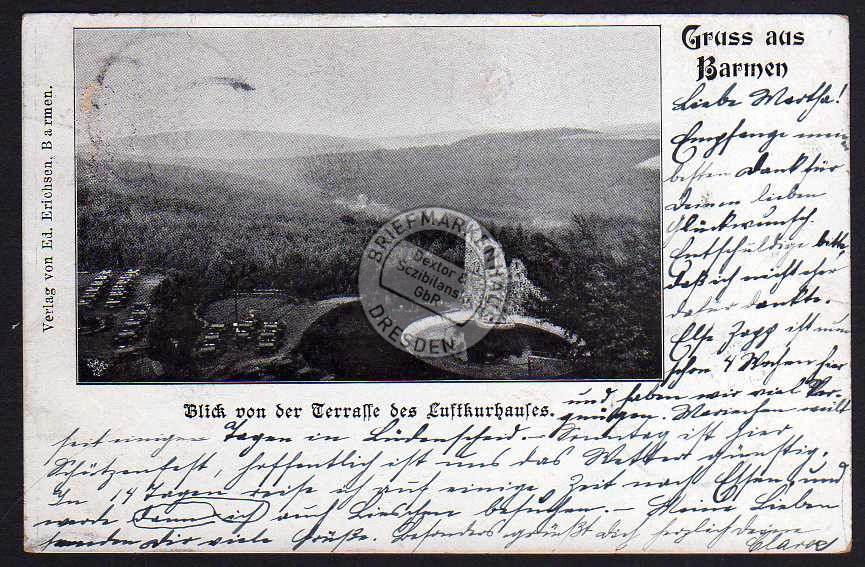 Gruss aus
Barmen
Verlag von Ed. Erichsen, Barmen.
BRIEFMARKENHAUS
Dextor &
Sczibilans
GbR
DRESDEN
Blick von der Terrasse des Luftkurhauses.
Liebe Martha!
Empfange mein
besten Dank für
Deinen lieben
Glückwunsch.
Entschuldige bitte,
daß ich nicht eher
dafür dankte.
Else Jagg ist nun
schon 4 Wochen hier
und haben wir viel Ver-
gnügen. Mariechen weilt
seit einigen Tagen in Lüdenscheid. – Sonntag ist hier
Schützenfest, hoffentlich ist uns das Wetter günstig.
In 14 Tagen reise ich auf einige Zeit nach Essen, und
werde dann ich auch Lieschen besuchen. – Meine Lieben
senden Dir viele Grüße. Besonders grüßt Dich herzlich Deine
Clara